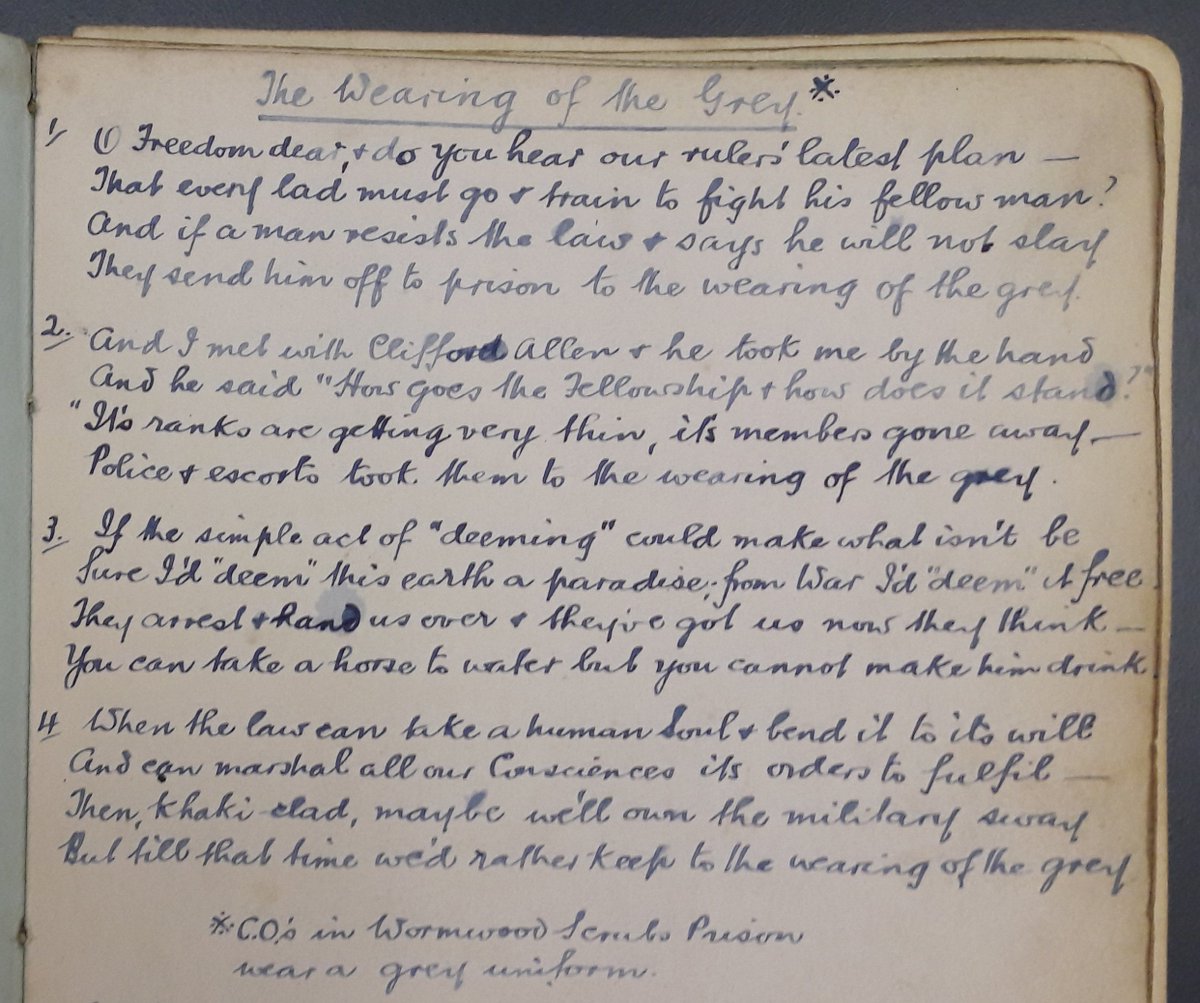 The Wearing of the Grey.*
1/ O Freedom dear, & do you hear our rulers' latest plan —
That every lad must go & train to fight his fellow man?
And if a man resists the law & says he will not slay
They send him off to prison to the wearing of the grey.
2. And I met with Clifford Allen & he took me by the hand
And he said "How goes the Fellowship & how does it stand?"
"It's ranks are getting very thin, it's members gone away —
Police & escorts took them to the wearing of the grey.
3. If the simple act of "deeming" could make what isn't be
Sure I'd "deem" this earth a paradise; from War I'd "deem" it free.
They arrest & hand us over & they've got us now they think —
You can take a horse to water but you cannot make him drink.
4 When the law can take a human Soul & bend it to its will
And can marshal all our Consciences its orders to fulfil —
Then, Khaki-clad, maybe we'll own the military sway
But till that time we'd rather keep to the wearing of the grey
* C.O's in Wormwood Scrubs Prison
wear a grey uniform.